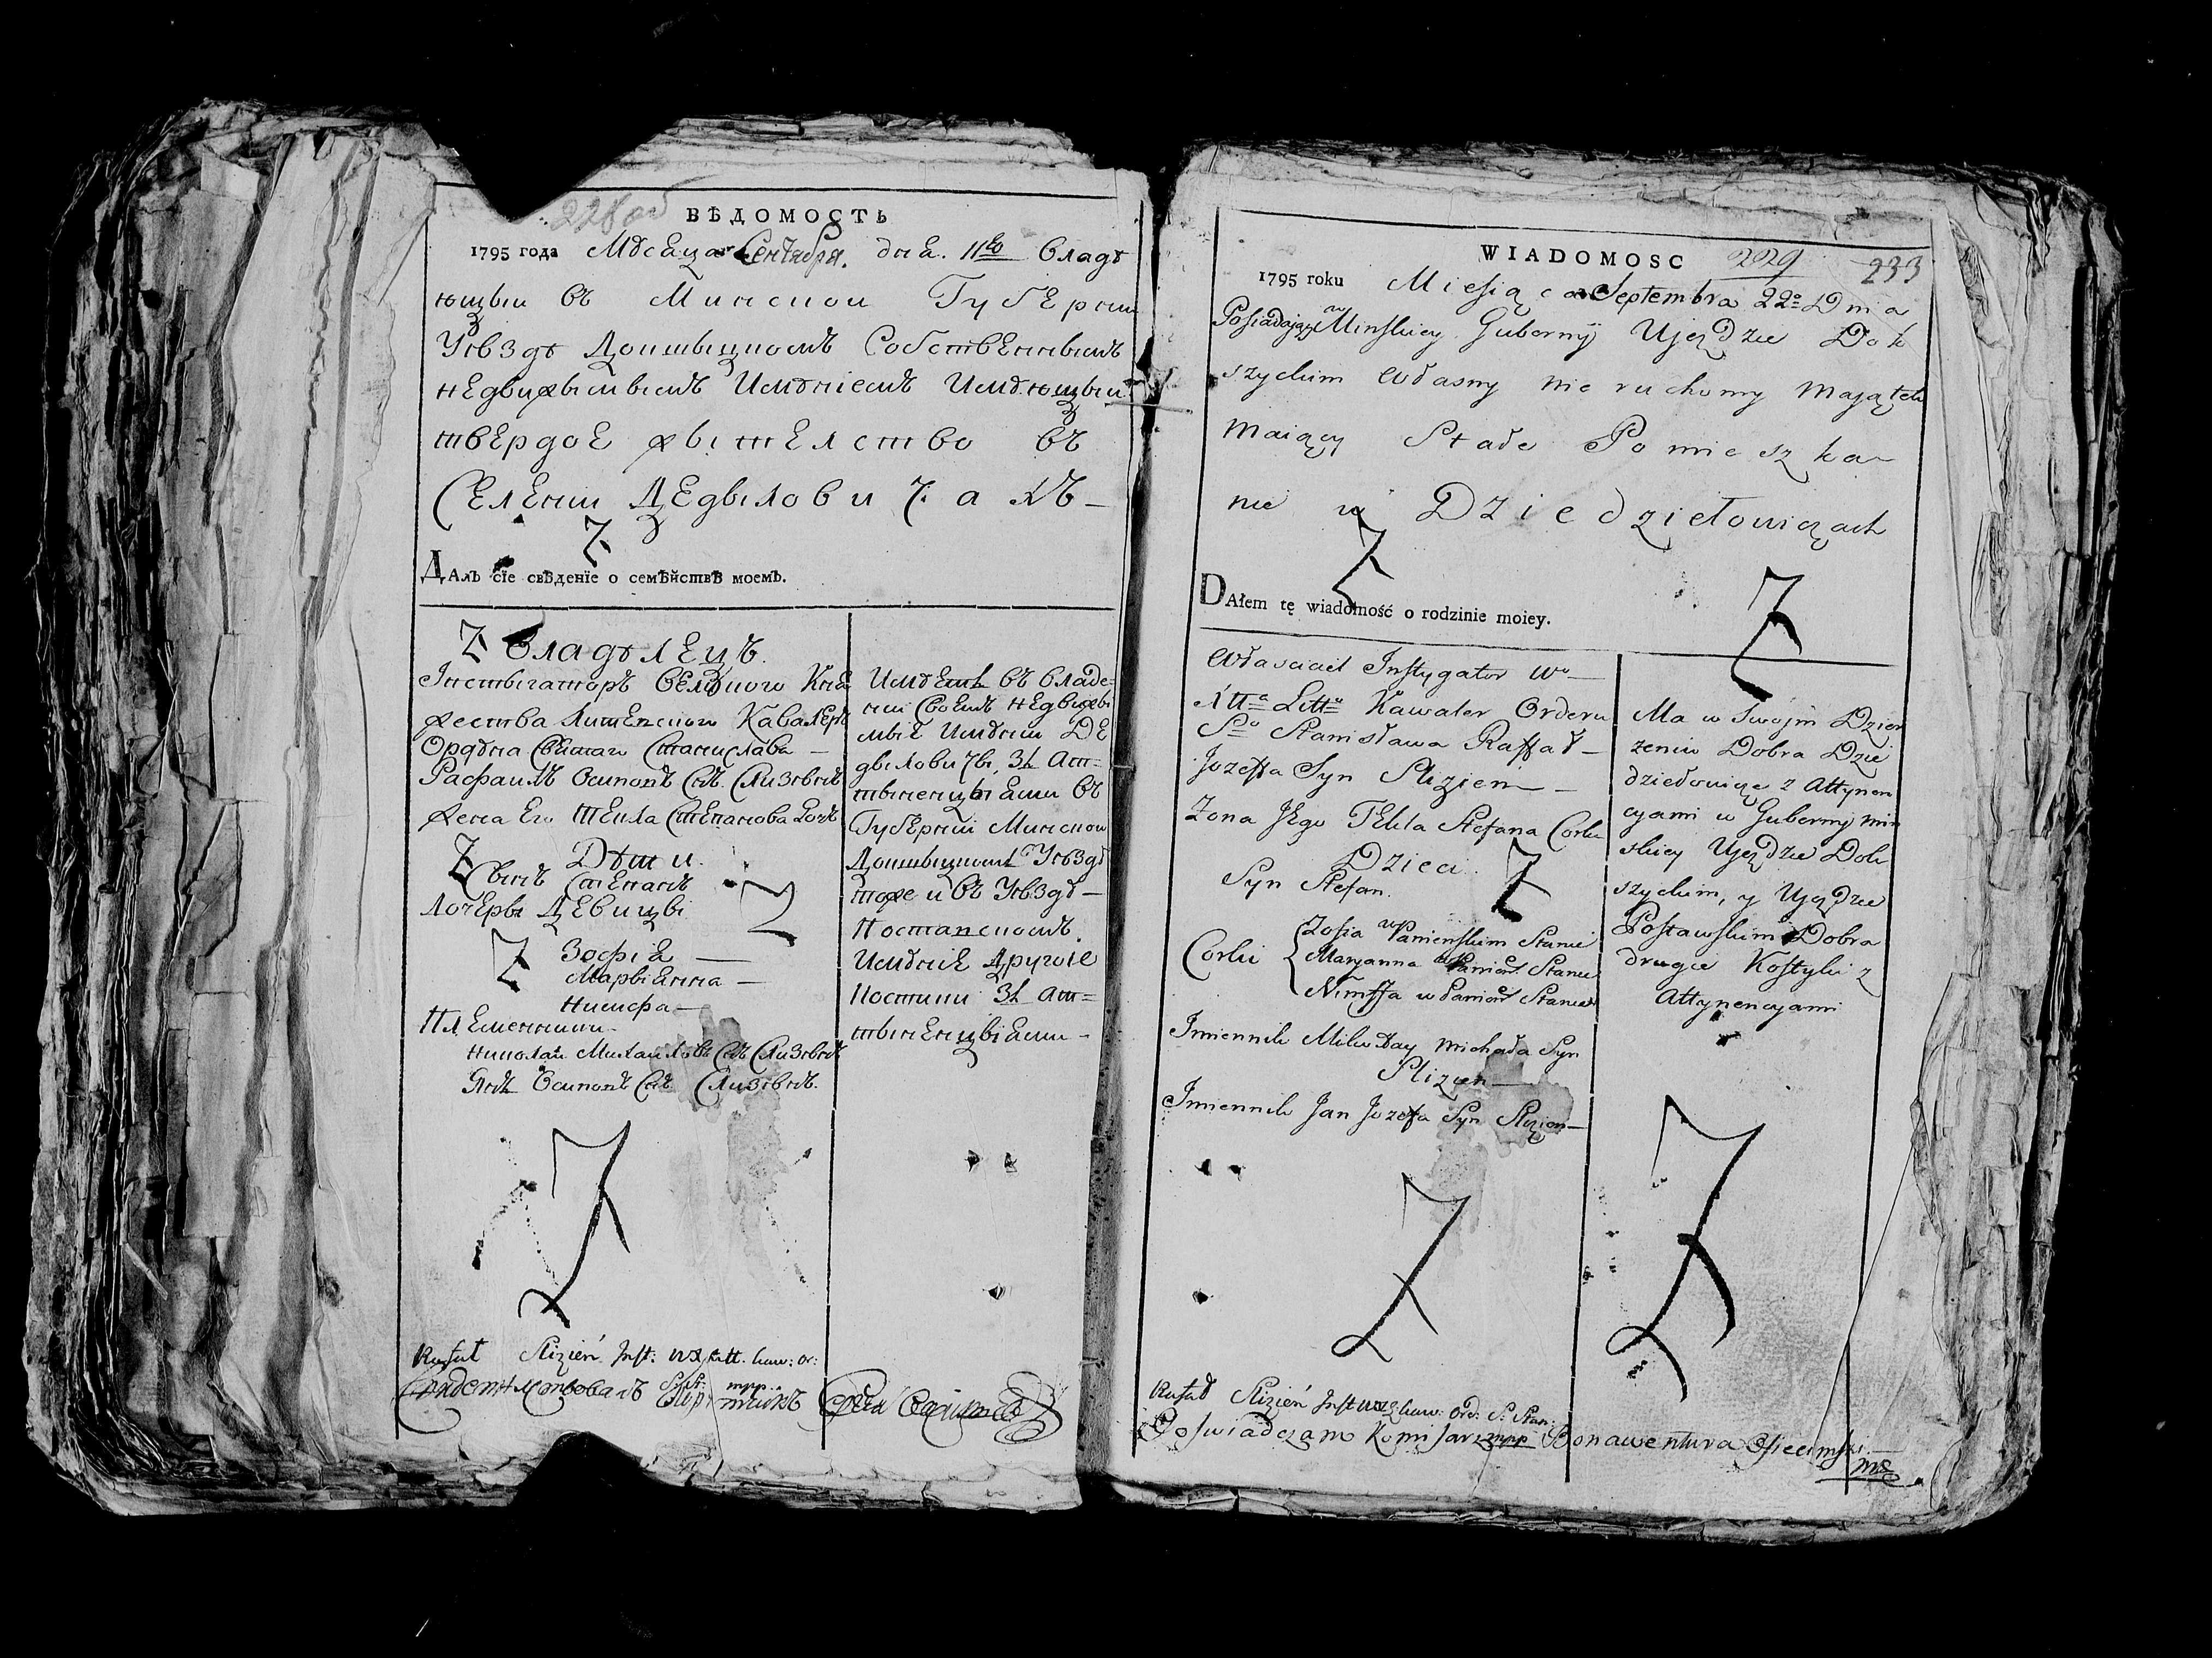 228 об
ВѢДОМОСТЬ
1795 года Мѣсеца Сентября. дня. 11го владѣ
ющыи въ Минскои Губернии
Уѣздѣ Докшыцкомъ Собственнымъ
недвижымымъ Имѣніемъ Имѣющыи
твердое жытелство въ
Селении Дедыловичахъ
Далъ сїе свѣденїе о семѣйствѣ моемъ.
Владѣлецъ.
Инстыгаторъ Великого Кня
жества Литевского Кавалеръ
Ордѣна Святаго Станислава
Рафаилъ Осиповъ Снъ. Слизѣнь
жена Его Текла Степанова Дочь
Дѣти.
Сынъ Степанъ
Дочеры Девицы
Зофія
Марыянна
Нимфа
Племенники
Николай Михаиловъ Снъ Слизѣнь
Янъ Осиповъ Снъ Слизѣнь.
Имѣетъ въ владе-
нии Своемъ недвижы
мые Имѣнии Де
дыловичы, Зъ Ат-
тыненцыями въ
Губернии Минскои
Докшыцкомъ Уѣздѣ
тоже и въ Уѣздѣ
Поставскомъ.
Имѣніе Другое
Костыки Зъ Ат-
тыненцыями
Rafał Slizień Inst: WX Litt. kaw: or:
S: St: mpp
WIADOMOSC 229 233
1795 roku Miesiąca Septembra 22o Dnia
Posiadający w Minskiey Gubernij Ujezdzie Dok
szyckim własny nie ruchomy Maiątek
Maiący Stałe Pomieszka
nie w Dziedziełowiczach
DAłem tę wiadomość o rodzinie moiey.
Własciciel Instygator Wo
Xtta Litto Kawaler Orderu
So Stanisława Raffał
Jozeffa Syn Slizien
Zona Jego Tekla Stefana Corka
Dzieci
Syn Stefan.
Corki
Zofia w Panienskim Stanie
Maryanna w Panień Stanie
Nimffa w Panień Stanie
Imiennik Mikołay Michała Syn
Slizien
Imiennik Jan Jozeffa Syn Slizien
Ma w Swojm Dzier
zeniu Dobra Dzie
dziełowicze z Attynen
cyami w Gubernij Min
skiey Ujezdzie Dok
szyckim, y Ujezdzie
Postawskim Dobra
drugie Kostyki z
Attynencyami
Rafał Slizień Inst WXL kaw: Ord: S: Stan:
Poswiadczam Komisarz mpp Bonawentura